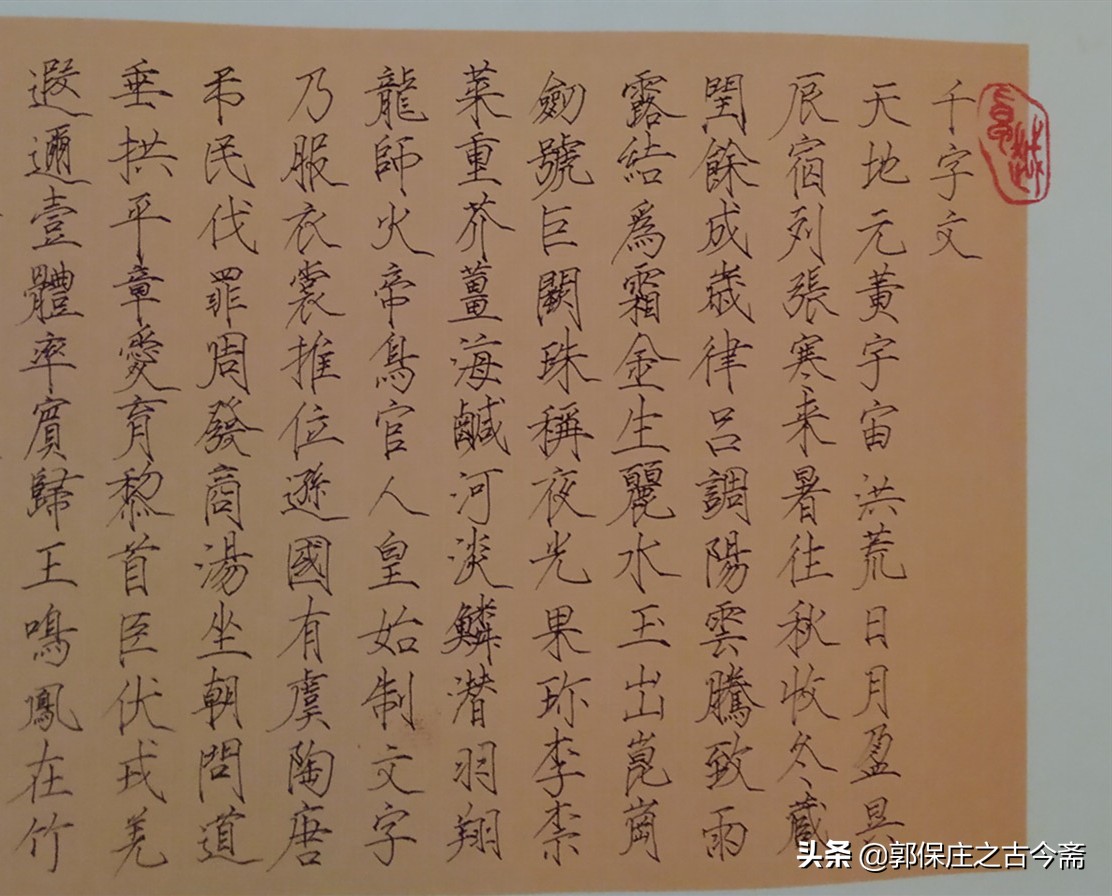 千字文
天地元黃宇宙洪荒日月盈昃
辰宿列張寒来暑往秋收冬藏
閏餘成歲律呂調陽雲騰致雨
露結爲霜金生麗水玉出崑崗
劒號巨闕珠稱夜光果珎李柰
菜重芥薑海鹹河淡鱗潛羽翔
龍師火帝鳥官人皇始制文字
乃服衣裳推位遜國有虞陶唐
吊民伐罪周發商湯坐朝問道
垂拱平章愛育黎首臣伏戎羌
遐邇壹體率賓歸王鳴鳳在竹
头条 @郭保庄之古今斋